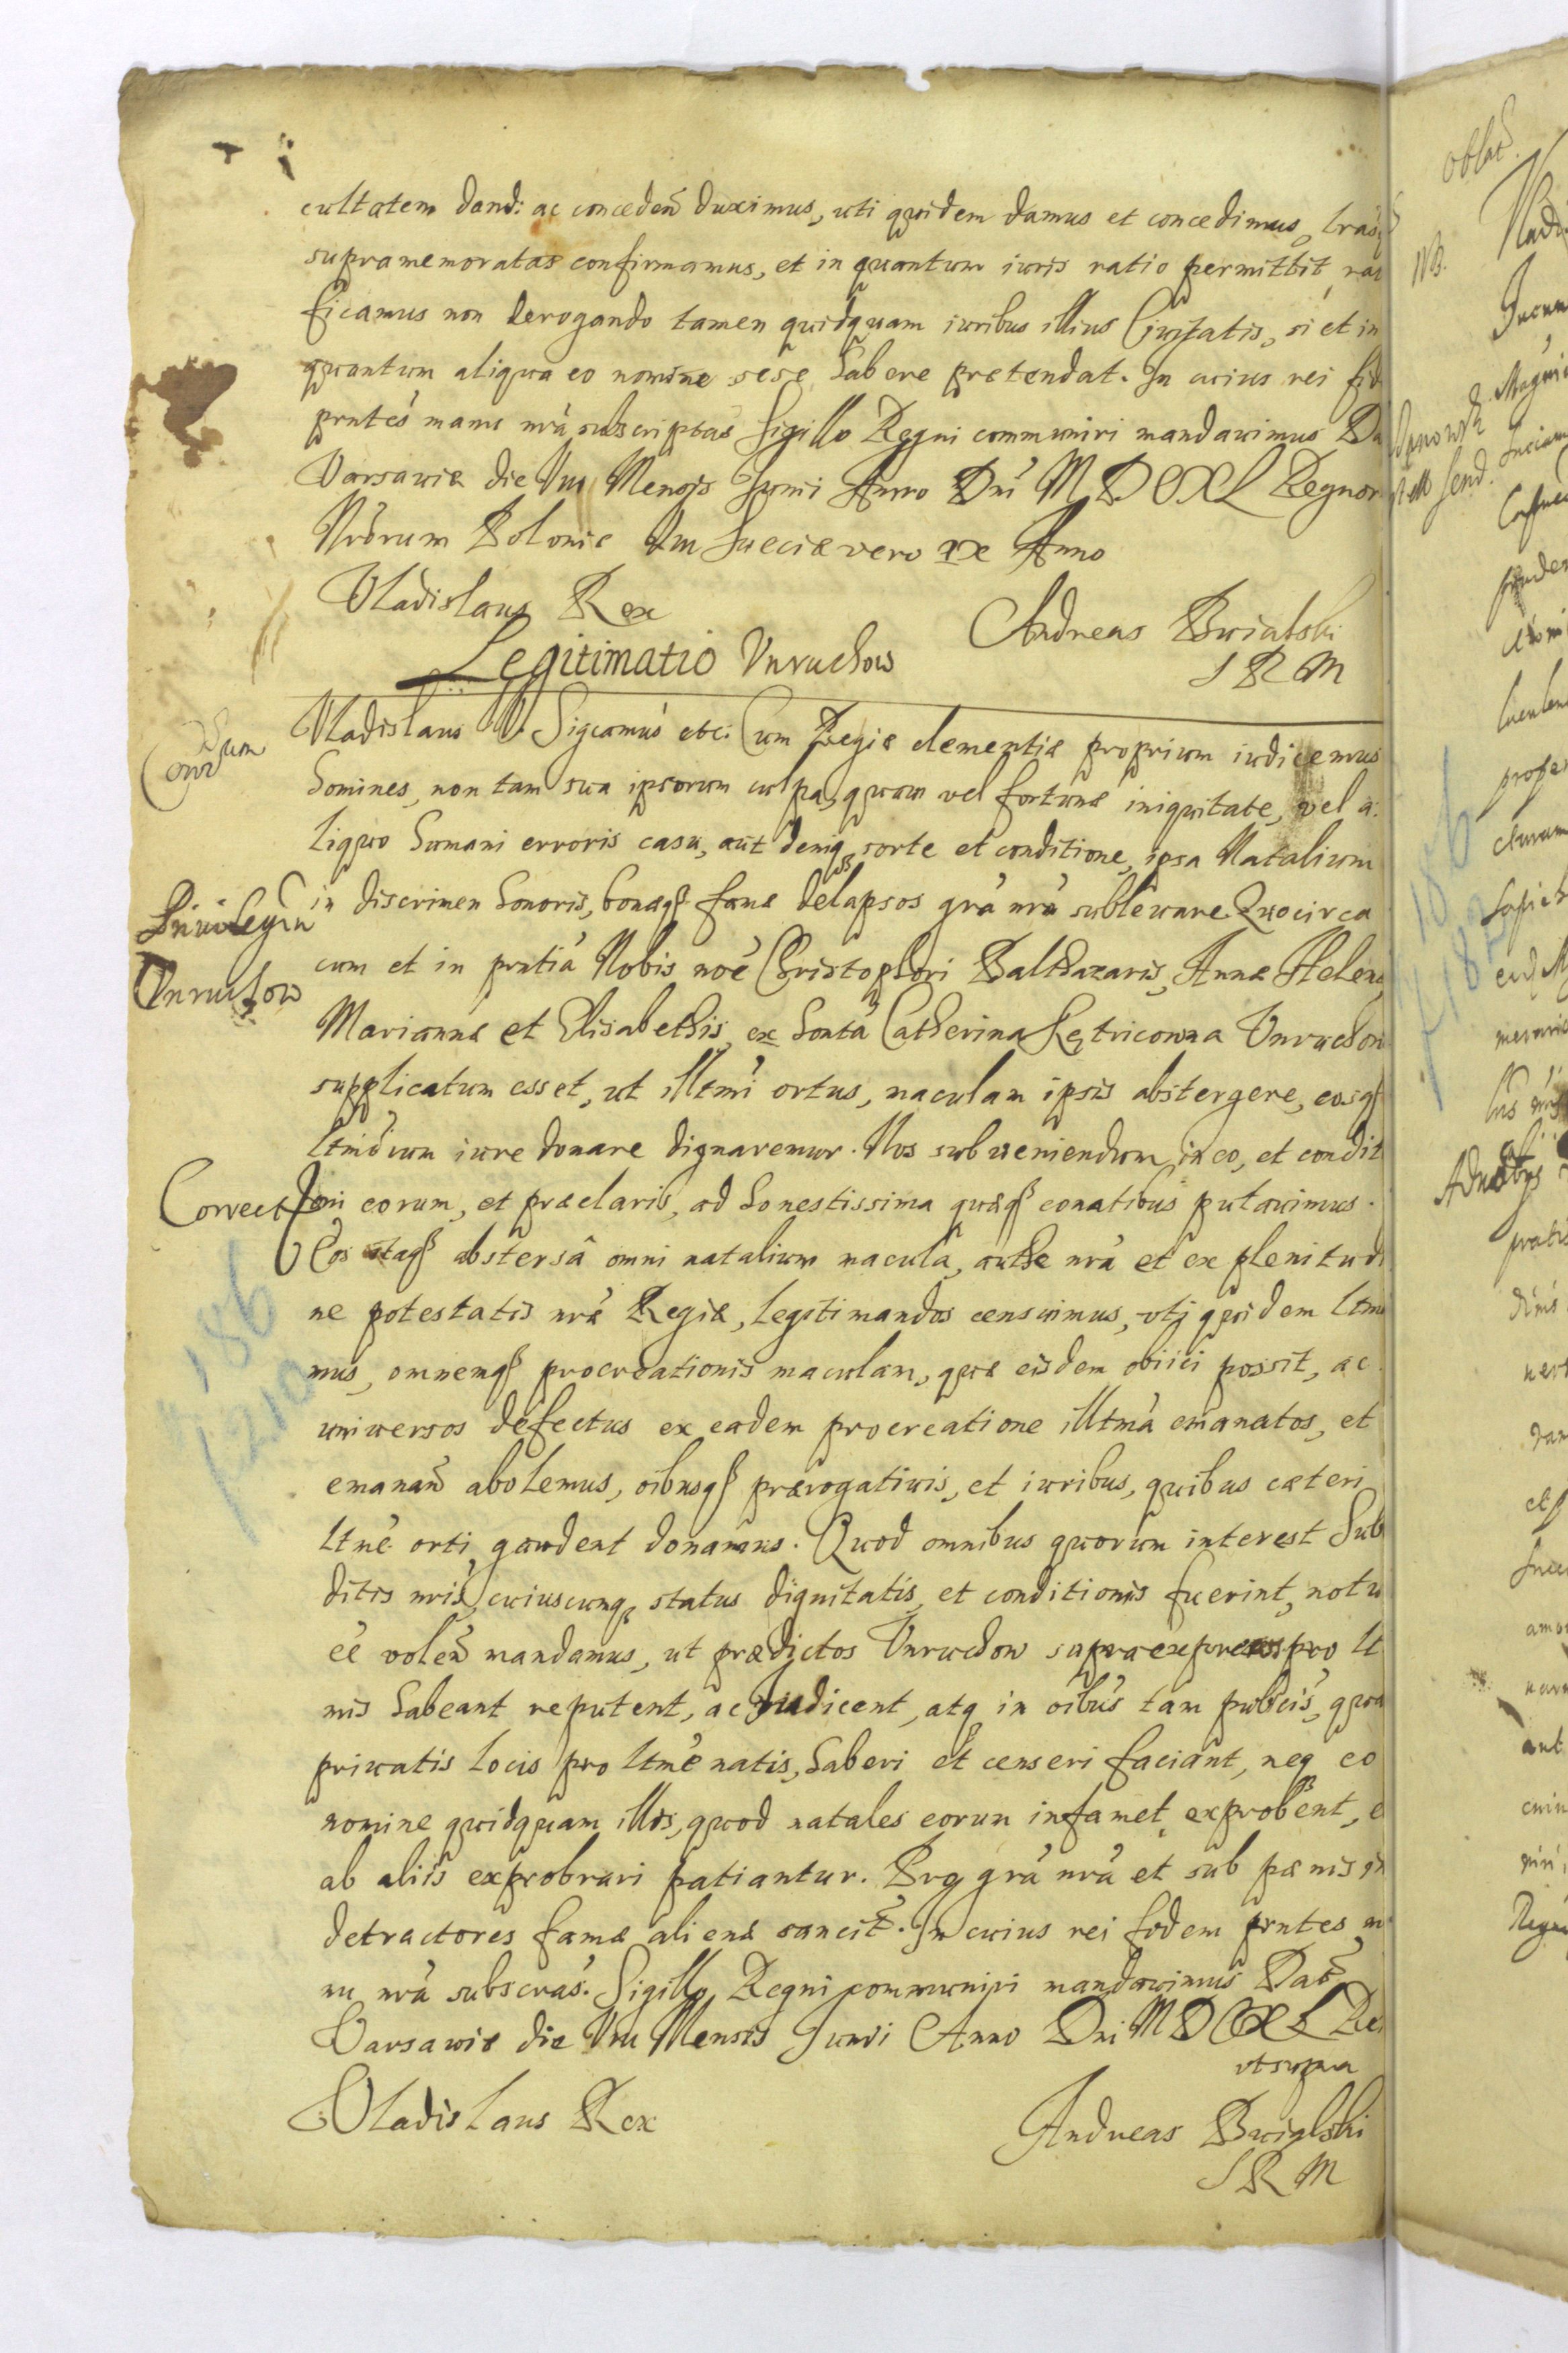 cultatem dandi: ac conceden duximus, uti quidem damus et concedimus, lrasq
supramemoratas confirmamus, et in quantum iuris ratio permittit, rati
ficamus non derogando tamen quidquam iuribus illius Civitatis, si et in
quantum aliqua eo nomine sese habere pretendat. In cuius rei fid
prntes manu nra subscriptas Sigillo Regni communiri mandavimus Da
Varsaviæ die VIII Mensis Junii Anno Dni MDCXL Regnor
Nrorum Poloniæ VIII Sueciæ vero IX Anno
Vladislaus Rex
Andreas
S R M
Legitimatio Unruchow
Vladislaus IV. Sigcamus etc: Cum Regiæ clementiæ proprium iudicemus
homines, non tam sua ipsorum culpa, quam vel fortunæ iniquitate, vel a:
liquo humani erroris casu, aut deniq sorte et conditione, ipsa Natalium
in discrimen honoris, bonæq famæ delapsos gra nra sublevare. Quocirca
Privilegiu
Unruchow
cum et in prntia Nobis noe Christophori Balthazaris, Annæ Helenæ,
Mariannæ et Elisabethis, ex honta Catherina Unruchow
supplicatum esset, ut illtmi ortus, maculam ipsis abstergere, eosq
ltmorum iure donare dignaremur. Nos subveniendum in eo, et condit
Correct
ioni eorum, et præclaris, ad honestissima quæq conatibus putavimus.
Eos itaq abstersâ omni natalium maculâ, authe nra et ex plenitudi
ne potestatis nræ Regiæ, legitimandos censuimus, uti quidem ltma
mus, omnemq procreationis maculam, quæ eisdem obiici possit, ac
universos defectus ex eadem procreatione illtma emanatos, et
emanan abolemus, oibusq prærogativis, et iuribus, quibus cæteri
ltme orti gaudent donamus. Quod omnibus quorum interest Sub
ditis nris, cuiuscunq status dignitatis, et conditionis fuerint, notu
ee volen mandamus, ut prædictos Unruchow supra expressos pro lt
mis habeant reputent, ac Iudicent, atq in oibus tam publicis, qua
privatis locis pro ltme natis, haberi et censeri faciant, neq eo
nomine quidquam illis, quod natales eorum infamet, exprobrent, e
ab aliis exprobrari patiantur. Pro gra nra et sub pænis in
detractores famæ alienæ sancit. In cuius rei fidem prntes m
nu nra subscras. Sigillo Regni communiri mandavimus Dat
Varsaviæ die VIII Mensis Junii Anno Dni MDCXL Re
ut supra
Vladislaus Rex
Andreas
S R M
186
210
186
182
oblat
NB.